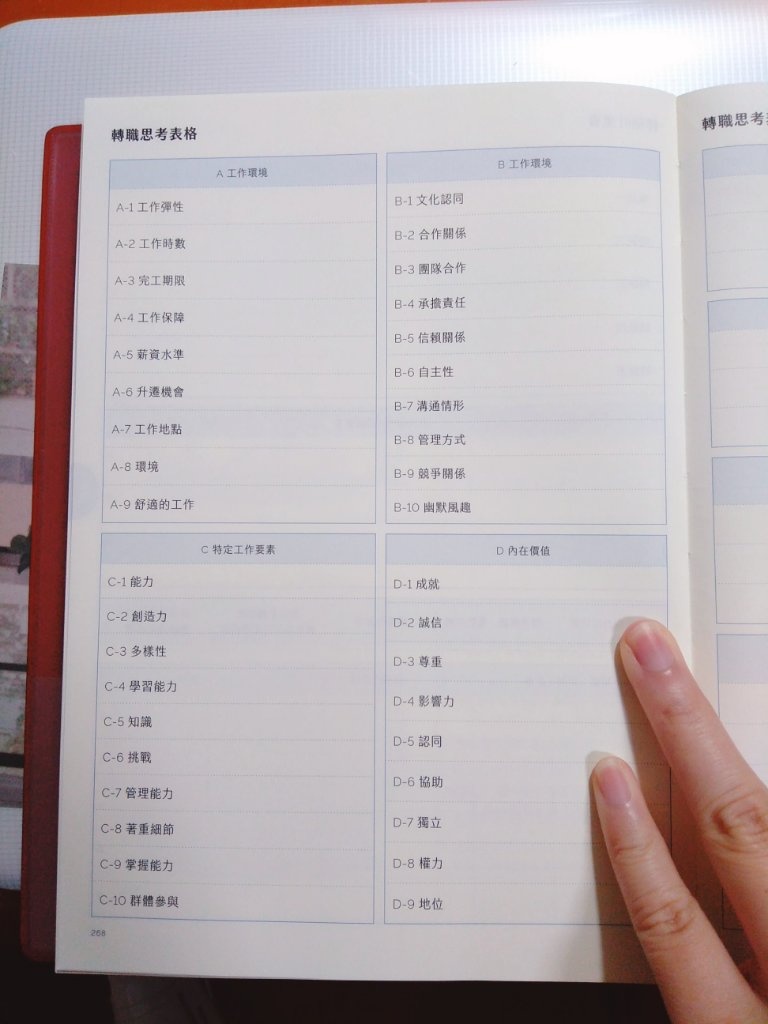 轉職思考表格
A 工作環境
A-1 工作彈性
A-2 工作時數
A-3 完工期限
A-4 工作保障
A-5 薪資水準
A-6 升遷機會
A-7 工作地點
A-8 環境
A-9 舒適的工作
B 工作環境
B-1 文化認同
B-2 合作關係
B-3 團隊合作
B-4 承擔責任
B-5 信賴關係
B-6 自主性
B-7 溝通情形
B-8 管理方式
B-9 競爭關係
B-10 幽默風趣
C 特定工作要素
C-1 能力
C-2 創造力
C-3 多樣性
C-4 學習能力
C-5 知識
C-6 挑戰
C-7 管理能力
C-8 著重細節
C-9 掌握能力
C-10 群體參與
D 內在價值
D-1 成就
D-2 誠信
D-3 尊重
D-4 影響力
D-5 認同
D-6 協助
D-7 獨立
D-8 權力
D-9 地位
268
轉職思考